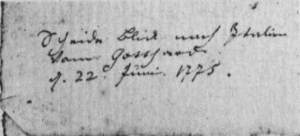 Scheide Blick nach Italien
vom Gotthard
d. 22 Juni 1775.